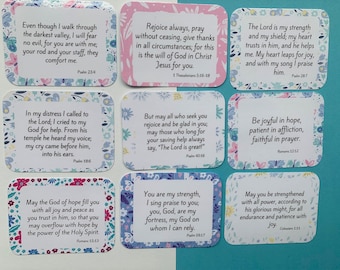 Even though I walk through
the darkest valley, I will fear
no evil, for you are with me;
your rod and your staff, they
comfort me.
Psalm 23:4
Rejoice always, pray
without ceasing, give thanks
in all circumstances; for this
is the will of God in Christ
Jesus for you.
1 Thessalonians 5:16-18
The Lord is my strength
and my shield; my heart
trusts in him, and he helps
me. My heart leaps for joy,
and with my song I praise
him.
Psalm 28:7
In my distress I called to
the Lord; I cried to my
God for help. From his
temple he heard my voice;
my cry came before him,
into his ears.
Psalm 18:6
But may all who seek you
rejoice and be glad in you;
may those who long for
your saving help always
say, "The Lord is great!"
Psalm 40:16
Be joyful in hope,
patient in affliction,
faithful in prayer.
Romans 12:12
May the God of hope fill you
with all joy and peace as
you trust in him, so that you
may overflow with hope by
the power of the Holy Spirit.
Romans 15:13
You are my strength,
I sing praise to you;
you, God, are my
fortress, my God on
whom I can rely.
Psalm 59:17
May you be strengthened
with all power, according to
his glorious might, for all
endurance and patience with
joy.
Colossians 1:11